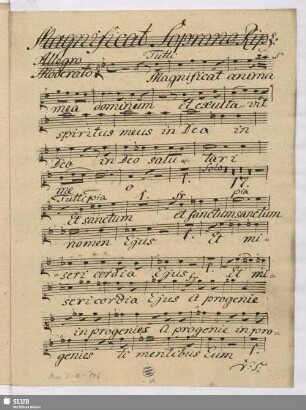 Magnificat Soprano Rip:
Allegro Tutti
Moderato Magnificat anima
mea dominum et exulta vit
spiritus meus in Deo in
Deo in Deo salu - tari
Solo
me o 1. 17.
Tutti pia 1. fr pia
Et sanctum et sanctum sanctum
nomen Ejus Et mi-
1.
seri cordia Ejus Et mi
seri cordia Ejus a progenie
in progenies a progenie in pro-
genies ti mentibus Eum 1.
SLUB